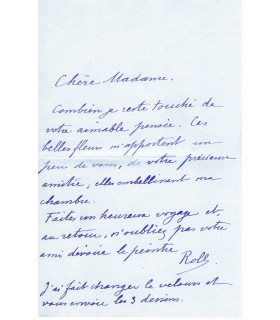 Chère Madame.
Combien je reste touché de
votre aimable pensée. Ces
belles fleurs m'apportent un
peu de vous, de votre précieuse
amitié, elles embellissent ma
chambre.
Faites un heureux voyage et,
au retour, n'oubliez pas votre
ami dévoué le peintre
Roll
J'ai fait changer le velours et
vous envoie les 3 dessins.